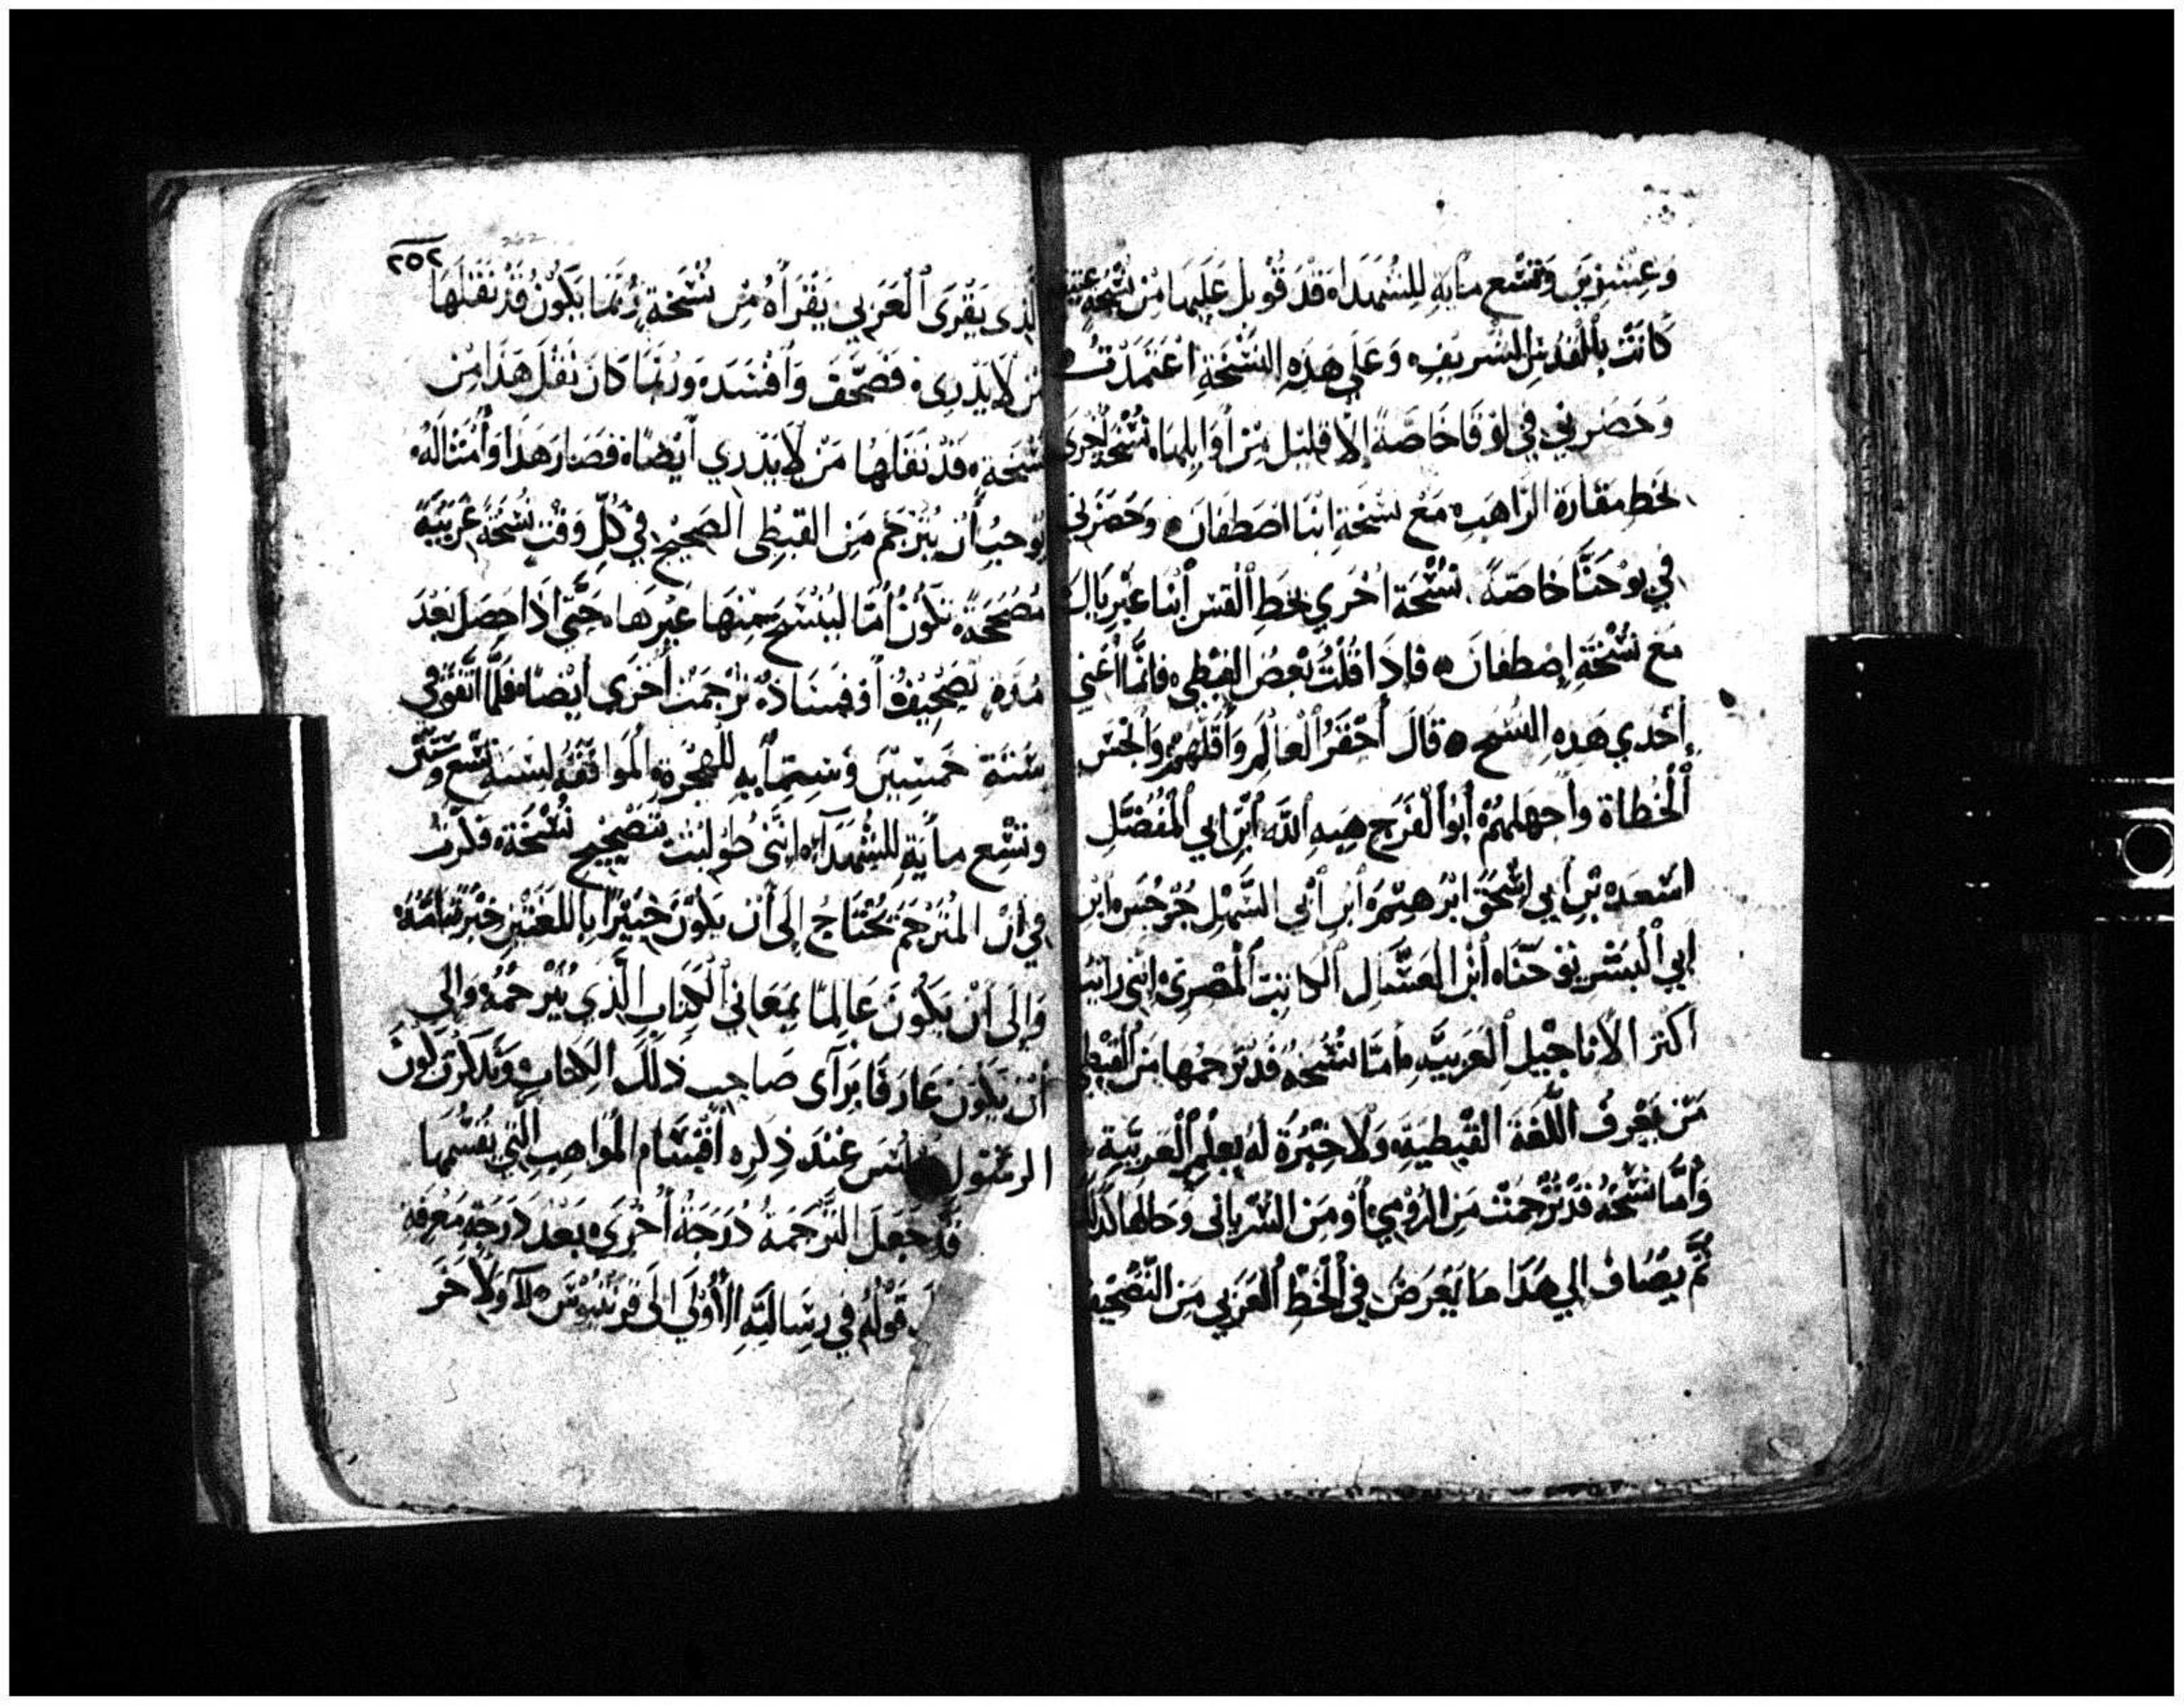 وَعِشْرِين وَتِسْع مايَه لِلشُهَدَاء قَدْ قُوبِل عَلَيهَا مِن نُسْخَه عتيقه
كانَت بالقُدسِ الشَريفِ وَعَلى هَذِه النُسْخَةِ اعْتَمَدْتُ
وَحَضرني في لوُقا خَاصَّة إلا قَلِيل مِن أوَايلهَا نُسْخَه اُخرى
بخَط مقارَة الراهَب مَعْ نسْخَةِ انبَا اصَطفان وحَضَرَني
في يوُحَنَّا خاصّةً نُسْخَة اُخري بخَط القسِ أنبا غبريال
مَعَ نُسْخَةِ إصطفان فإذَا قُلْتُ بَعضُ القبْطِي فانَّما أعْني
إحْدي هَذِه النُسَخ قَالَ أحْقَرُ العَالَم وَأقَلّهُم وَأنْجَس
الْخُطاة وأجهلهُم أبوُ الفَرَج هِبه الله ابن ابي المُفَضَّلِ
اسْعَد بن ابي اسْحَق ابْرَهِيْم ابن أبي السَّهْل جُرْجس ابن
ابي البشر يُوحَنّا ابن العَسَّال الكاتِب المصْري انني رَايتُ
أكثر الأناجِيْل العَرَبيَّه امّا نُسْخَهُ قَدْ ترجمَها مِن القبْطي
مَن يَعْرِفُ اللُّغَةَ القبْطِيَة وَلا خِبْرَةَ لهُ بِعلْمِ الْعَرَبيّةِ
وَأمَّا نُسْخَهُ قَدْ تُرْجِمَتْ مِن الرُوْمِي أوْ مِن السُرْياني وَحالهَا كَذلكَ
ثُمّ يُضَافُ إلي هَذَا مَا يَعْرضُ في الْخَطِ العَرَبي مِن التّصْحِيف
٢٥٢
الذي يقْرَى العَرَبي يَقْرَاهُ مِن نُسْخَةٍ رُبَّمَا يَكوُن قَدْ نَقَلَهَا
مَن لا يَدْرِي فَصَحَّفَ وَأفْسَدَ وَرُبَّما كانَ نَقْل هَذَا مِن
نسْخَة قَدْ نَقَلَهَا مَنْ لا يَدْري أيضًا فَصَارَ هَذا وَأمْثَالهُ
يُوجبُ أنْ يُتَرْجَم مِن القبطي الصَحِيْح في كُلّ وَقت نُسْخَةً عَرَبيَّةً
مُصَححَة تكُونُ أُمًّا ليُنْسَخ مِنهَا غَيْرهَا حَتَّى اذا حصَل بَعْدَ
مُدَّه تَصْحِيْفُ أوْ فسَادُ تُرْجِمَتْ أخْرَى أيضًا فَلَمَّا اتّفقَ في
سَنَة خَمسِيْن وَستمايه للهِجْرَة المُوافقَه لسَنَة تِسْع وَستِّين
وتسْع مايَة للشُهَدَآء انّنى طُولبْت بتَصْحِيْح نُسْخَة فَكرْت
في أن المُتَرْجِمَ يُحْتَاجُ إلَى أن يَكوُن خَبيْرًا باللغَتَيْن خِبْرَةً تَامَّةً
وَإلَى أنْ يَكُونَ عَالِمًا بِمَعَاني الكِتَابِ الَّذِي يُتَرْجِمُهُ وَإلى
أنْ يَكُونَ عَارفًا برَآى صَاحِب ذَلِكَ الكِتَاب وَتَذكرْت كوْن
الرسُول بولس عِنْدَ ذِكره أقْسَام المَواهِب الَتي يُقسّمهَا
قَدْ جَعَلَ التَرْجَمَةَ دَرَجَةً اُخْرَى بَعْدَ دَرَجَةِ مَعْرفَة
قَوْلهُ في رسَالتِهِ الأوُلى إلَى قُورنتيُوس وَلآخَر